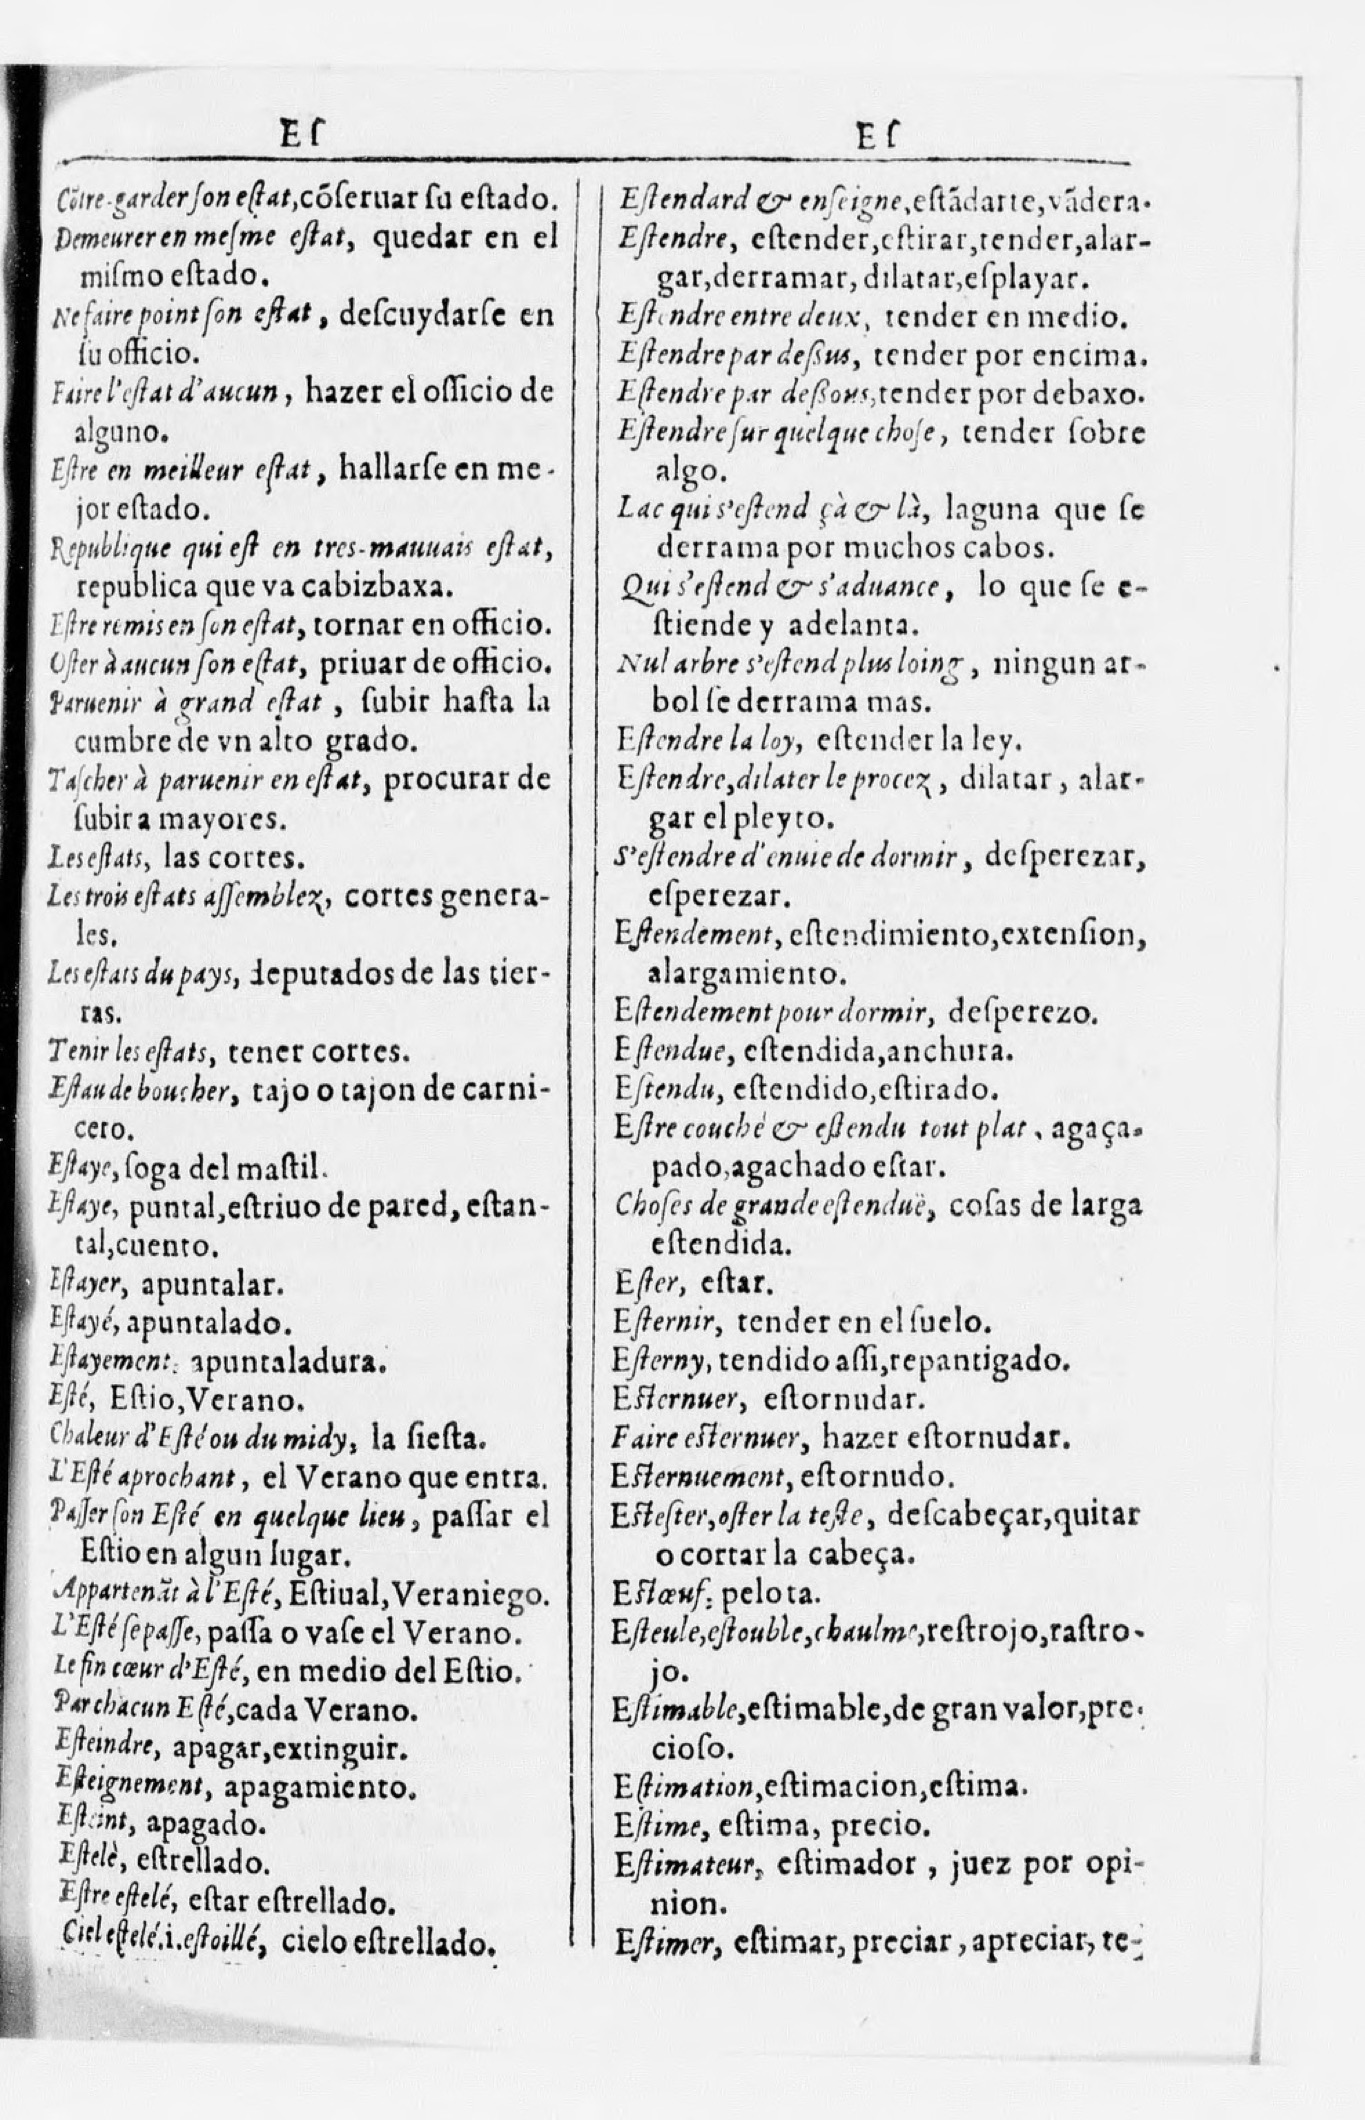 Eſ
Cõtre-garder ſon eſtat, cõſeruar ſu eſtado.
Demeurer en meſme eſtat, quedar en el
miſmo eſtado.
Ne faire point ſon eſtat, deſcuydarſe en
ſu officio.
Faire l'eſtat d'aucun, hazer el officio de
alguno.
Eſtre en meilleur eſtat, hallarſe en me-
jor eſtado.
Republique qui eſt en tres-mauuais eſtat,
republica que va cabizbaxa.
Eſtre remis en ſon eſtat, tornar en officio.
Oſter à aucun ſon eſtat, priuar de officio.
Paruenir à grand eſtat, ſubir haſta la
cumbre de vn alto grado.
Taſcher à paruenir en eſtat, procurar de
ſubir a mayores.
Les eſtats, las cortes.
Les trois eſtats aſſemblez, cortes genera-
les.
Les eſtats du pays, deputados de las tier-
ras.
Tenir les eſtats, tener cortes.
Eſtau de boucher, tajo o tajon de carni-
cero.
Eſtaye, ſoga del maſtil.
Eſtaye, puntal, eſtriuo de pared, eſtan-
tal, cuento.
Eſtayer, apuntalar.
Eſtayé, apuntalado.
Eſtayement, apuntaladura.
Eſté, Eſtio, Verano.
Chaleur d'Eſté ou du midy, la ſieſta.
L'Eſté aprochant, el Verano que entra.
Paſſer ſon Eſté en quelque lieu, paſſar el
Eſtio en algun lugar.
Appartenãt à l'Eſté, Eſtiual, Veraniego.
L'Eſté ſe paſſe, paſſa o vaſe el Verano.
Le fin cœur d'Eſté, en medio del Eſtio.
Par chacun Eſté, cada Verano.
Eſteindre, apagar, extinguir.
Eſteignement, apagamiento.
Eſteint, apagado.
Eſtelè, eſtrellado.
Eſtre eſtelé, eſtar eſtrellado.
Ciel eſtelé.i.eſtoillé, cielo eſtrellado.
Eſ
Eſtendard & enſeigne, eſtãdarte, vãdera.
Eſtendre, eſtender, eſtirar, tender, alar-
gar, derramar, dilatar, eſplayar.
Eſtendre entre deux, tender en medio.
Eſtendre par deſſus, tender por encima.
Eſtendre par deſſous, tender por debaxo.
Eſtendre ſur quelque choſe, tender ſobre
algo.
Lac qui s'eſtend çà & là, laguna que ſe
derrama por muchos cabos.
Qui s'eſtend & s'aduance, lo que ſe e-
ſtiende y adelanta.
Nul arbre s'eſtend plus loing, ningun ar-
bol ſe derrama mas.
Eſtendre la loy, eſtender la ley.
Eſtendre, dilater le procez, dilatar, alar-
gar el pleyto.
S'eſtendre d'enuie de dormir, deſperezar,
eſperezar.
Eſtendement, eſtendimiento, extenſion,
alargamiento.
Eſtendement pour dormir, deſperezo.
Eſtendue, eſtendida, anchura.
Eſtendu, eſtendido, eſtirado.
Eſtre couché & eſtendu tout plat, agaça-
pado, agachado eſtar.
Choſes de grande eſtenduë, coſas de larga
eſtendida.
Eſter, eſtar.
Eſternir, tender en el ſuelo.
Eſterny, tendido aſſi, repantigado.
Eſternuer, eſtornudar.
Faire eſternuer, hazer eſtornudar.
Eſternuement, eſtornudo.
Eſteſter, oſter la teſte, deſcabeçar, quitar
o cortar la cabeça.
Eſtœuf, pelota.
Eſteule, eſtouble, chaulme, reſtrojo, raſtro-
jo.
Eſtimable, eſtimable, de gran valor, pre-
cioſo.
Eſtimation, eſtimacion, eſtima.
Eſtime, eſtima, precio.
Eſtimateur, eſtimador, juez por opi-
nion.
Eſtimer, eſtimar, preciar, apreciar, te-